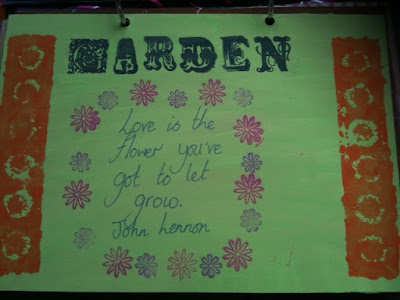 GARDEN
Love is the
flower you've
got to let
grow.
John Lennon